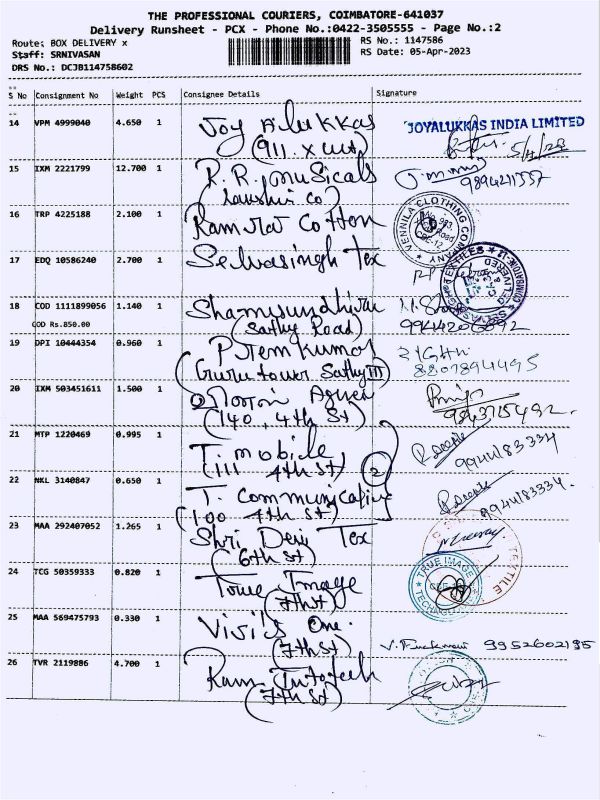 THE PROFESSIONAL COURIERS, COIMBATORE-641037
Delivery Runsheet - PCX - Phone No.:0422-3505555 - Page No.:2
Route: BOX DELIVERY x
RS No.: 1147586
Staff: SRNIVASAN
RS Date: 05-Apr-2023
DRS No.: DCJB114758602
S No Consignment No Weight PCS Consignee Details Signature
14 VPM 4999040 4.650 1 Joy Alukkas
(911. x cut)
JOYALUKKAS INDIA LIMITED
5/4/23
15 IXM 2221799 12.700 1 R.R. musicals
9894211337
16 TRP 4225188 2.100 1 Ramraj Cotton
VENNILA CLOTHING COMPANY
17 EDQ 10586240 2.700 1 Selvasingh Tex
18 COD 1111899056 1.140 1
COD Rs.850.00
(Sathy Road)
19 DPI 10444354 0.960 1 Prem Kumar
(Guru tower Sathy
8807894495
20 IXM 503451611 1.500 1
(140, 4th St)
21 MTP 1220469 0.995 1 T. mobile
(111 4th St) 2
9944183334
22 NKL 3140847 0.650 1 T. Communication
(100 4th St)
9944183334.
23 MAA 292407052 1.265 1 Shri Devi Tex
(6th St)
TEXTILE
24 TCG 50359333 0.820 1 True Image
(7th St)
TRUE IMAGE
25 MAA 569475793 0.330 1 Visi's One.
(7th St)
9952602195
26 TVR 2119886 4.700 1 Ram Infotech
(7th St)